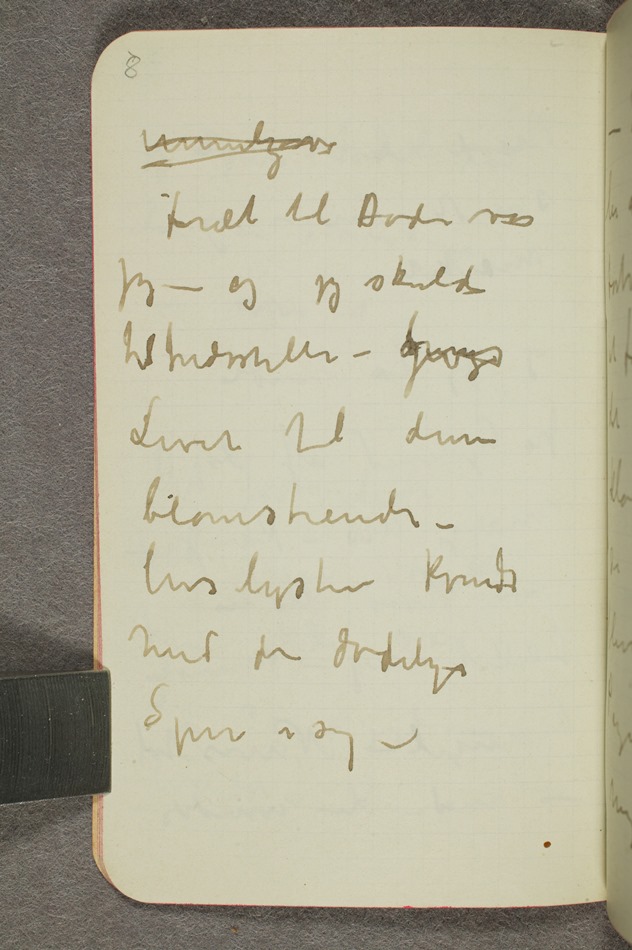 8
Født til Døden var
jeg — og jeg skulde
tilfredsstille —
Livet til denne
blomstrende –
livslystne Kvinde
med de dødelige
Spirer i sig —